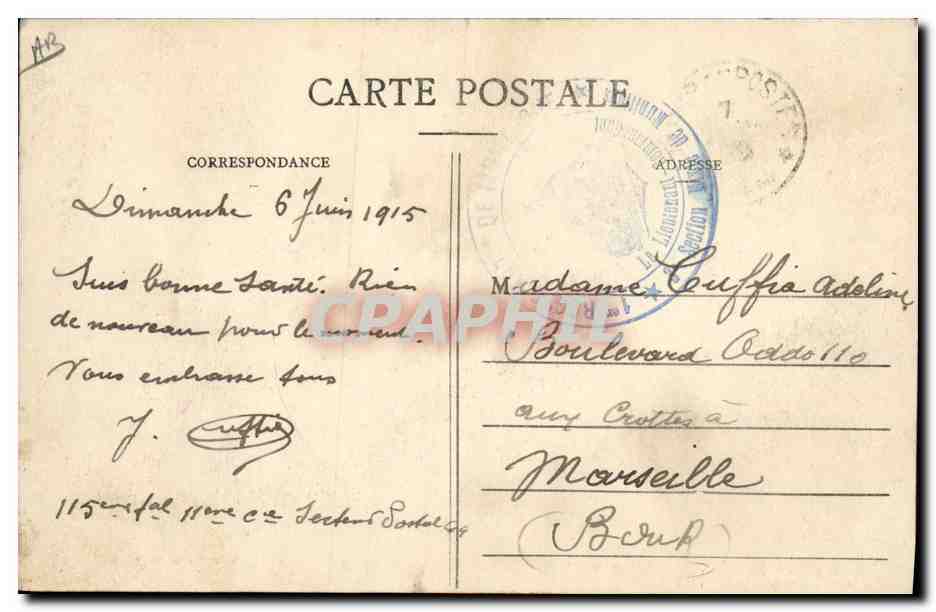 AB
CARTE POSTALE
CORRESPONDANCE
Dimanche 6 Juin 1915
Suis bonne santé. Rien
de nouveau pour le moment.
Vous embrasse tous
J. Cuffia
115eme 11eme Cie Secteur Postal
ADRESSE
Madame Cuffia Adeline
Boulevard Oddo 110
aux Crottes à
Marseille
(BduR)
Section de
Le Lieutenant
1er R
POSTE
7
CPARHIL